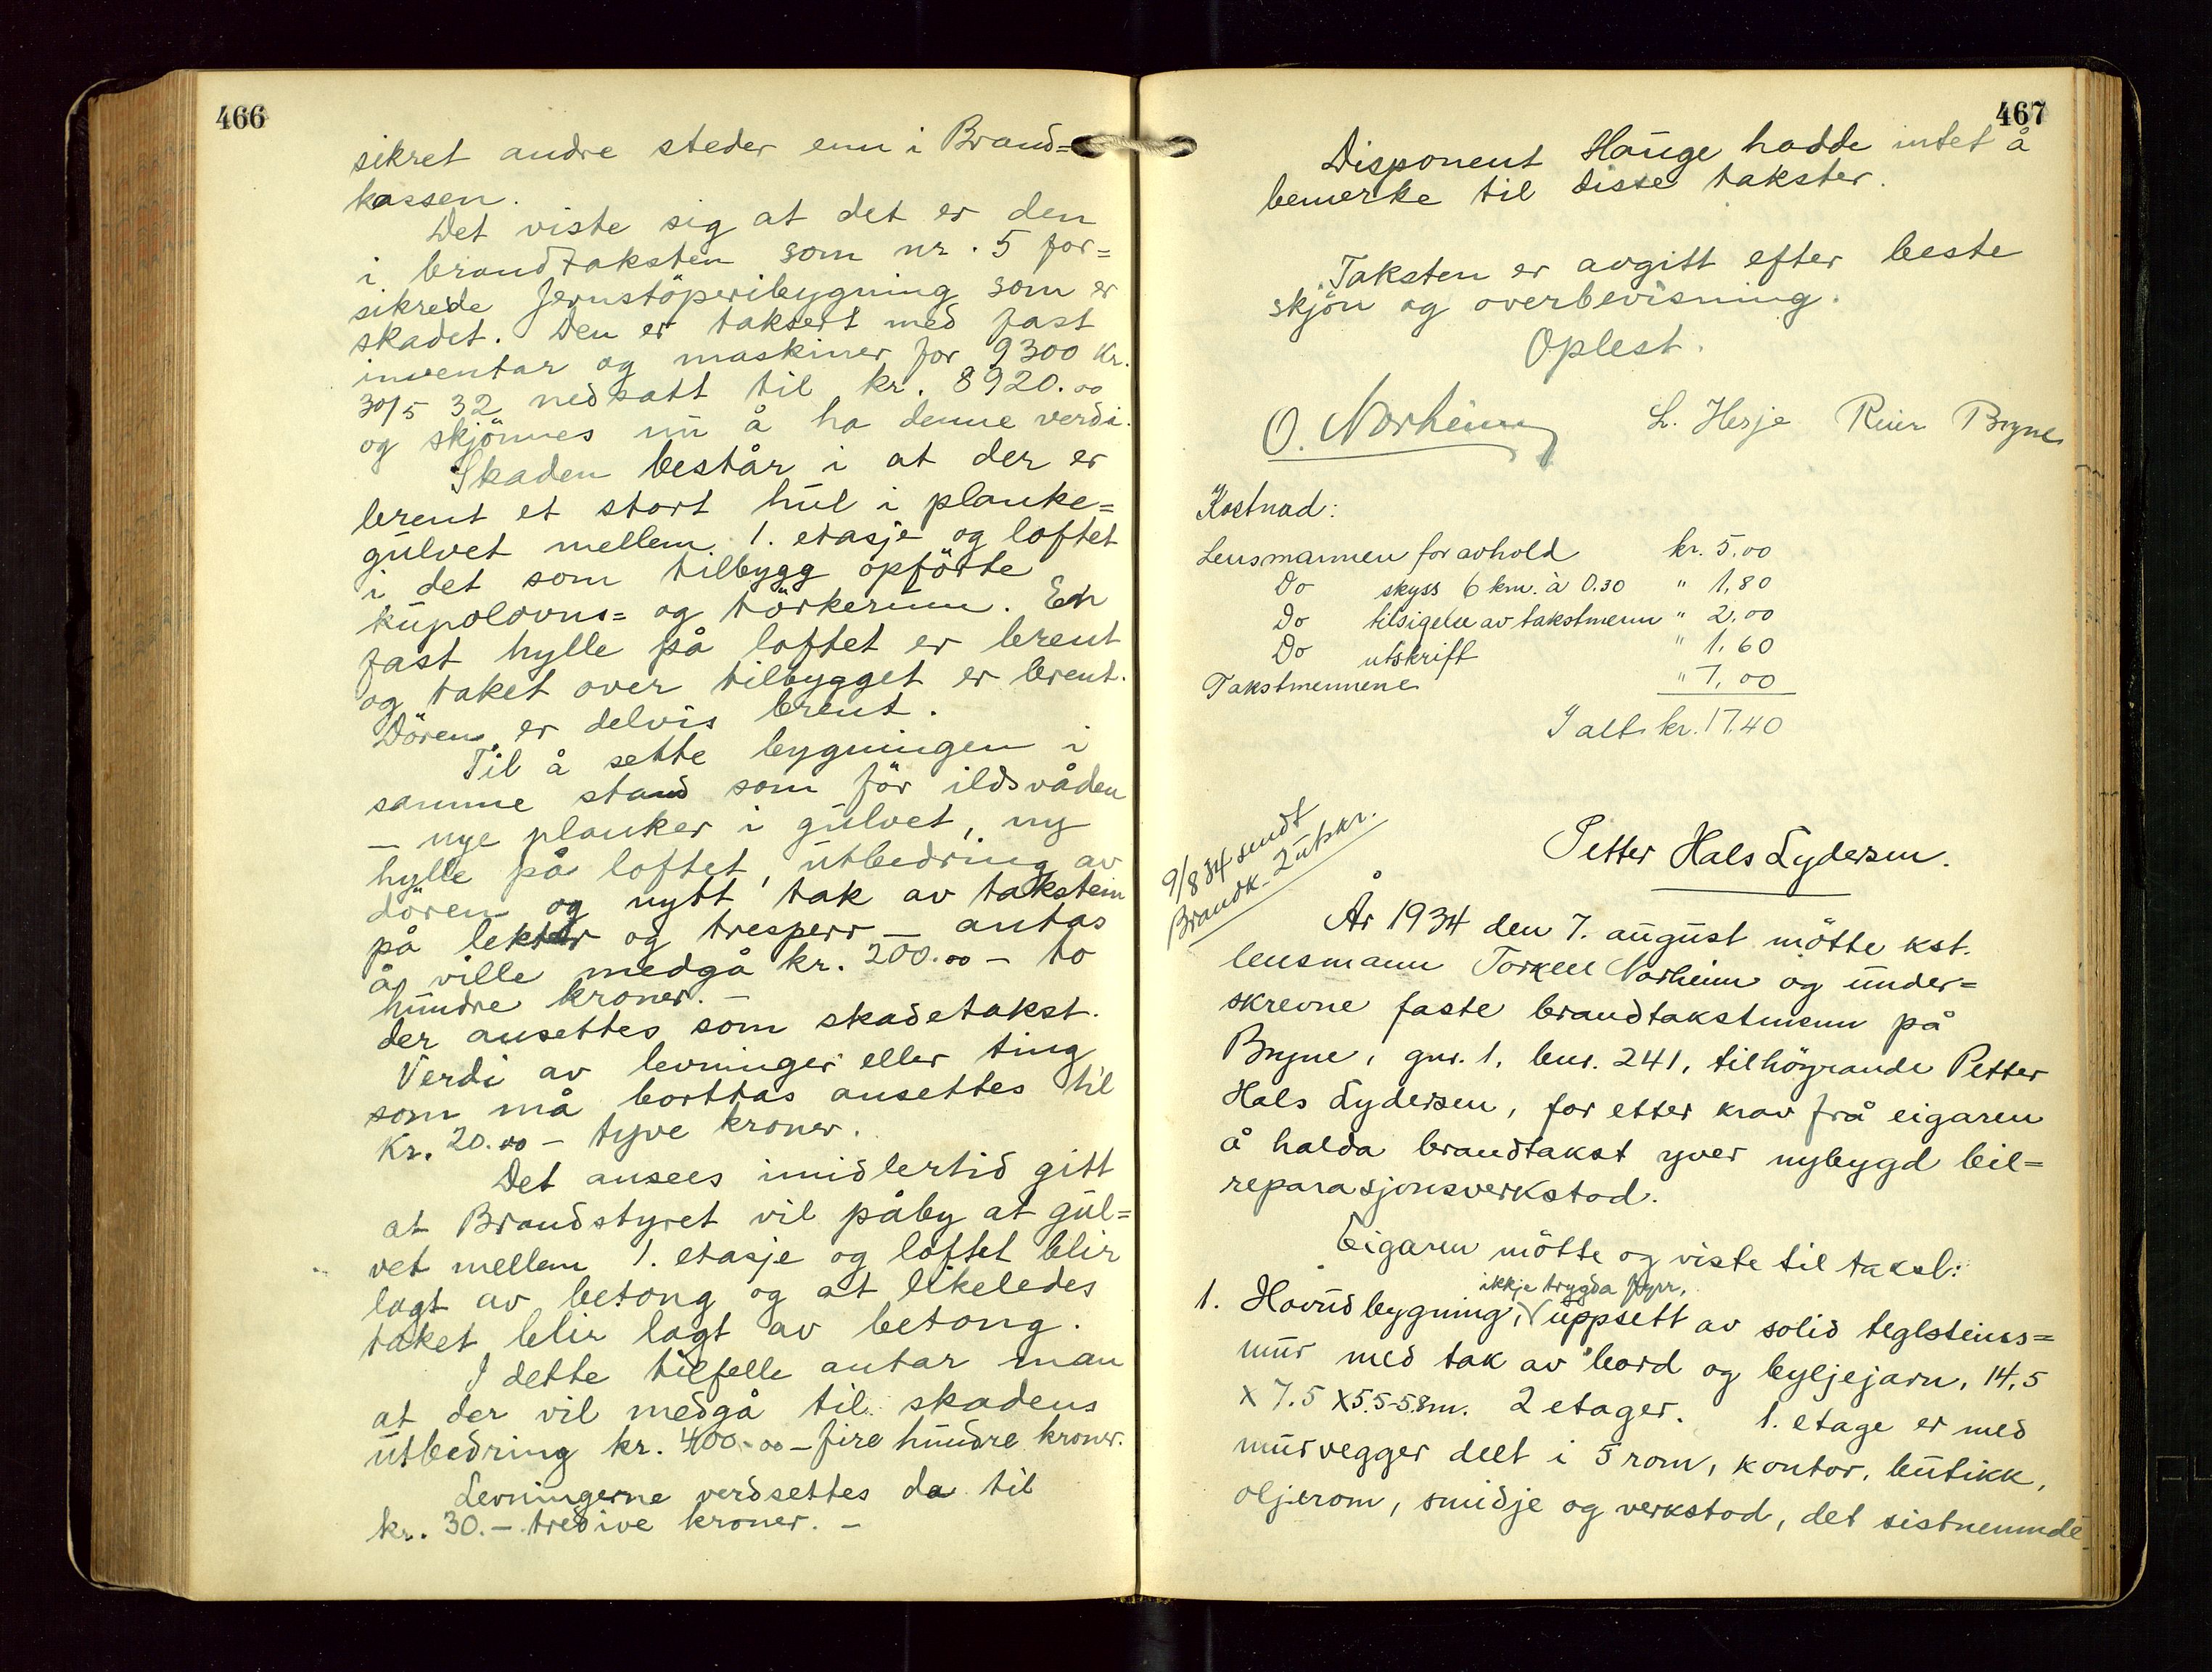 466
sikret andre steder enn i Brand=
kassen.
Det viste sig at det er den
i brandtaksten som nr. 5 for=
sikrede Jernstöperibygning som er
skadet. Den er taksert med fast
inventar og maskiner for 9300 kr.
30/5 32 nedsatt til kr. 8920.00
og skjönnes nu å ha denne verdi.
Skaden består i at der er
brent et stort hul i planke=
gulvet mellem 1. etasje og loftet
i det som tilbygg opförte
kupolovns= og törkerum. En
fast hylle på loftet er brent
og taket over tilbygget er brent.
Dören er delvis brent.
Til å sette bygningen i
samme stand som för ildsvåden
— nye planker i gulvet, ny
hylle på loftet, utbedring av
dören og nytt tak av takstein
på lekter og tresperr — antas
å ville medgå kr. 200.00 — to
hundre kroner. —
der ansettes som skadetakst.
Verdi av levninger eller ting
som må borttas ansettes til
Kr. 20.00 — tyve kroner.
Det ansees imidlertid gitt
at Brandstyret vil påby at gul=
vet mellem 1. etasje og loftet blir
lagt av betong og at likeledes
taket blir lagt av betong.
I dette tilfelle antar man
at der vil medgå til skadens
utbedring kr. 400.00 — fire hundre kroner.
Levningerne verdsettes da til
kr. 30.— tredive kroner. —
467
Disponent Hauge hadde intet å
bemerke til disse takster.
Taksten er avgitt efter beste
skjön og overbevisning.
Oplest.
O. Norheim L. Herje Reier Bryne
Kostnad:
Lensmannen for avhold kr. 5,00
Do skyss 6 km. à 0.30 " 1,80
Do tilsigelse av takstmenn " 2,00
Do utskrift " 1,60
Takstmennene " 7,00
I alt kr. 17.40
9/8 34 sendt
Brandk. 2 utskr.
Petter Hals Lydersen.
År 1934 den 7. august mötte kst.
lensmann Torkell Norheim og under=
skrevne faste brandtakstmenn på
Bryne, gnr. 1, bnr. 241, tilhöyrande Petter
Hals Lydersen, for etter krav frå eigaren
å halda brandtakst yver nybygd bil=
reparasjonsverkstad.
Eigaren mötte og viste til takst:
ikkje trygda fyrr,
1. Hovudbygning, uppsett av solid teglsteins=
mur med tak av bord og bylgjejarn, 14,5
x 7.5 x 5.5-5.8 m. 2 etager. 1. etage er med
murvegger delt i 5 rom, kontor, butikk,
oljerom, smidje og verkstad, det sistnemnde